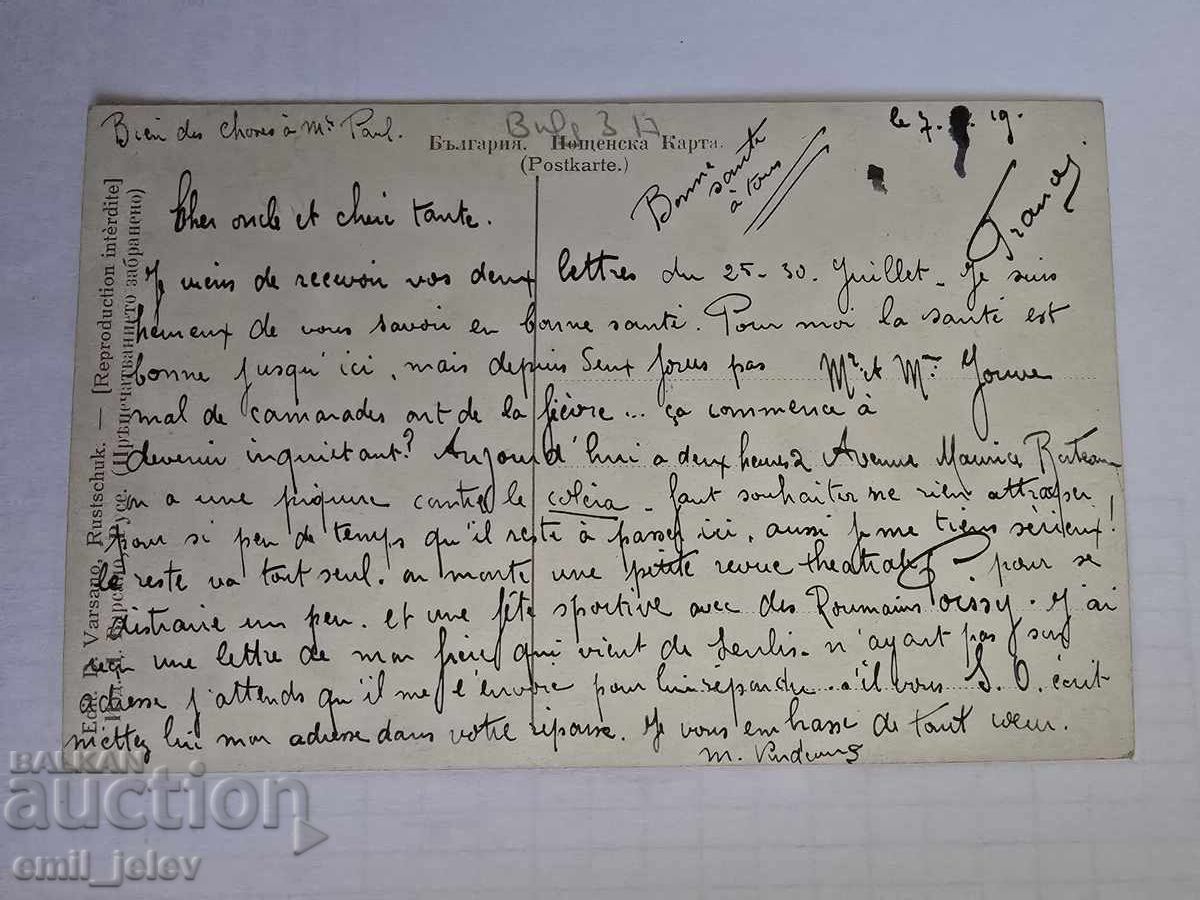 Bien des choses à Mr Paul.
Bulg 3 17
le 7. 19.
България. Пощенска Карта.
(Postkarte.)
Bonne
santé
à tous
France
Cher oncle et chère tante.
Je viens de recevoir vos deux lettres du 25-30. Juillet. Je suis
heureux de vous savoir en bonne santé. Pour moi la santé est
bonne jusqu'ici, mais depuis deux jours pas
Mr et Mme Jouve
mal de camarades ont de la fièvre... ça commence à
devenir inquiétant? Aujourd'hui à deux heures
2 Avenue Maurice Berteaux
on a une piqure contre le coléra. faut souhaiter ne rien attraper
pour si peu de temps qu'il reste à passer ici, aussi je me tiens sérieux!
le reste va tout seul. on monte une petite revue théatrale pour se
distraire un peu. et une fête sportive avec des Roumains. J'ai
Poissy
reçu une lettre de mon frère qui vient de Senlis. n'ayant pas son
adresse j'attends qu'il me l'envoie pour lui répondre. s'il vous écrit
S. O.
mettez lui mon adresse dans votre réponse. Je vous embrasse de tout coeur.
M.
Edit. R. Varsano, Rustschuk. — [Reproduction intèrdite]
Изд. Р. Варсано, Русе. (Прѣпечатванието забранено)
BALKAN
auction
emil_jelev